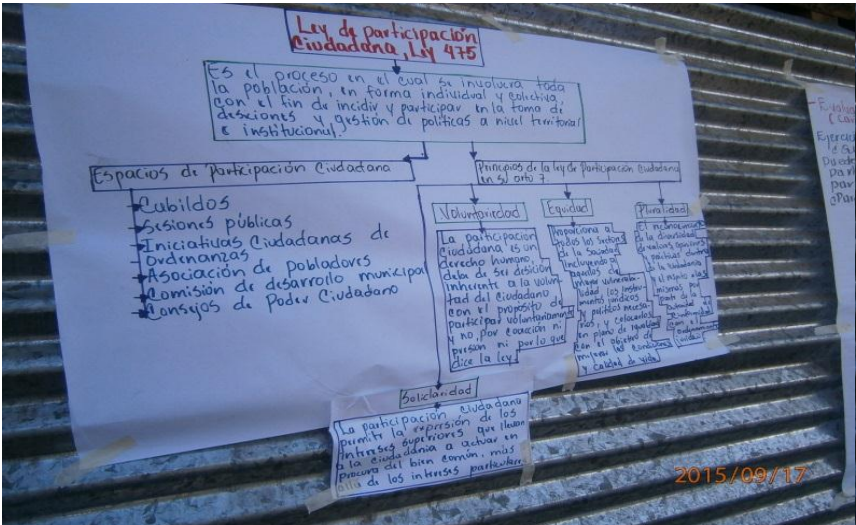 Ley de participación
Ciudadana, Ley 475
Es el proceso en el cual se involucra toda
la población, en forma individual y colectiva,
con el fin de incidir y participar en la toma de
desciones y gestión de políticas a nivel territorial
e institucional.
Espacios de Participación Ciudadana
Cabildos
Sesiones públicas
Iniciativas Ciudadanas de
Ordenanzas
Asociación de pobladores
Comisión de desarrollo municipal
Consejos de Poder Ciudadano
Principios de la ley de Participación Ciudadana
en su arto 7.
Voluntariedad
La participación
Ciudadana es un
derecho humano,
deba de ser desición
inherente a la volun
tad del ciudadano
con el propósito de
participar voluntariamente
y no, por coacción ni
presión ni por lo que
dice la ley
Equidad
Proporciona a
todos los sectores
de la Sociedad
incluyendo a
aquellos de
mayor vulnerabi
lidad los instru
mentos jurídicos
y políticos necesa
rios, y colocarlos
en plano de igualdad
con el objetivo de
mejorar las condiciones
y calidad de vida
Pluralidad
El reconocimiento
de la diversidad
de valores, opiniones
y políticas
de la ciudadanía
y el respeto a las
mismas por
parte de la
con el
ordenamiento
Solidaridad
La participación ciudadana
permite la expresión de los
intreses superiores que llevan
a la ciudadanía a actuar en
procura del bien común, más
allá de los intereses particulares
Ejercic
2015/09/17